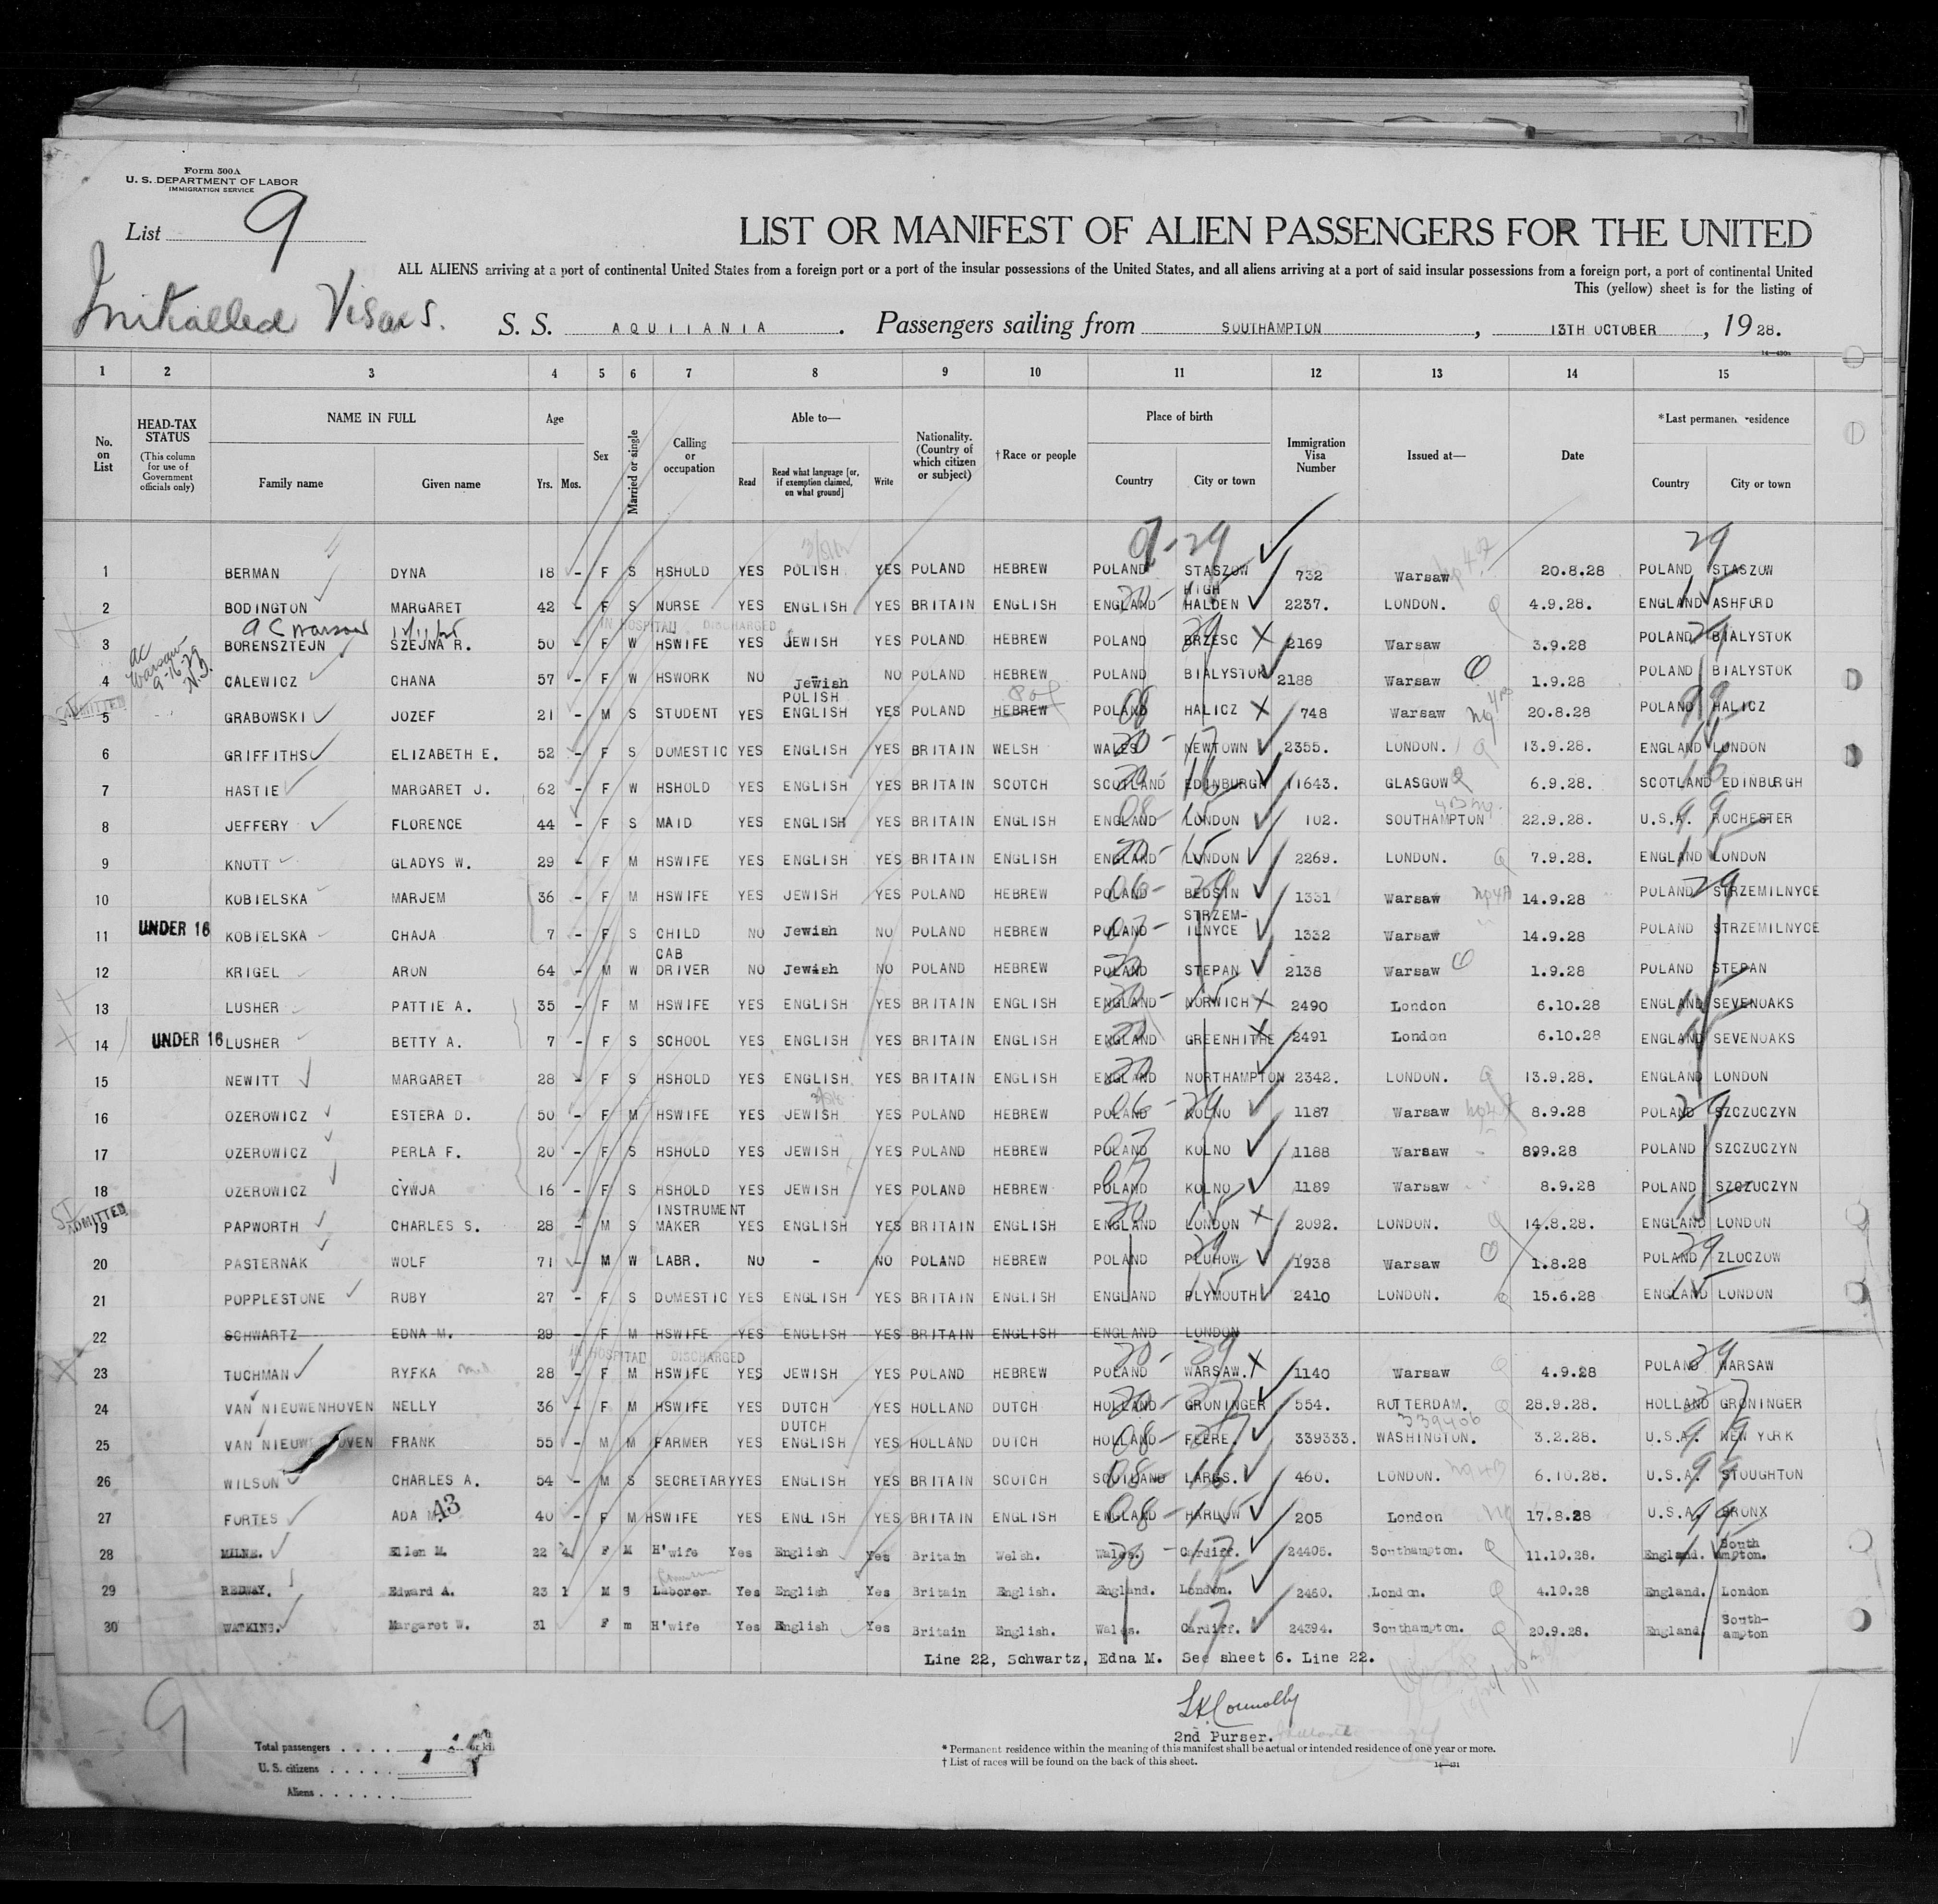 Form 500A
U. S. DEPARTMENT OF LABOR
IMMIGRATION SERVICE
List 9
LIST OR MANIFEST OF ALIEN PASSENGERS FOR THE UNITED
ALL ALIENS arriving at a port of continental United States from a foreign port or a port of the insular possessions of the United States, and all aliens arriving at a port of said insular possessions from a foreign port, a port of continental United
This (yellow) sheet is for the listing of
Initialled Visas.
S. S. AQUITANIA. Passengers sailing from SOUTHAMPTON, 13TH OCTOBER, 19 28.
1 2 3 4 5 6 7 8 9 10 11 12 13 14 15
No. on List HEAD-TAX STATUS (This column for use of Government officials only) NAME IN FULL Family name Given name Age Yrs. Mos. Sex Married or single Calling or occupation Able to— Read Read what language [or, if exemption claimed, on what ground] Write Nationality. (Country of which citizen or subject) †Race or people Place of birth Country City or town Immigration Visa Number Issued at— Date *Last permanent residence Country City or town
07-29 29
1 BERMAN DYNA 18 - F S HSHOLD YES POLISH YES POLAND HEBREW POLAND STASZOW 732 Warsaw 20.8.28 POLAND STASZOW
2 BODINGTON MARGARET 42 - F S NURSE YES ENGLISH YES BRITAIN ENGLISH ENGLAND HIGH HALDEN 2237. LONDON. 4.9.28. ENGLAND ASHFORD
IN HOSPITAL DISCHARGED
3 BORENSZTEJN SZEJNA R. 50 - F W HSWIFE YES JEWISH YES POLAND HEBREW POLAND BRZESC X 2169 Warsaw 3.9.28 POLAND BIALYSTOK
4 CALEWICZ CHANA 57 - F W HSWORK NO Jewish NO POLAND HEBREW POLAND BIALYSTOK 2188 Warsaw 1.9.28 POLAND BIALYSTOK
ADMITTED
5 GRABOWSKI JOZEF 21 - M S STUDENT YES POLISH ENGLISH YES POLAND HEBREW POLAND HALICZ X 748 Warsaw 20.8.28 POLAND HALICZ
6 GRIFFITHS ELIZABETH E. 52 - F S DOMESTIC YES ENGLISH YES BRITAIN WELSH WALES NEWTOWN 2355. LONDON. 13.9.28. ENGLAND LONDON
7 HASTIE MARGARET J. 62 - F W HSHOLD YES ENGLISH YES BRITAIN SCOTCH SCOTLAND EDINBURGH 11643. GLASGOW 6.9.28. SCOTLAND EDINBURGH
8 JEFFERY FLORENCE 44 - F S MAID YES ENGLISH YES BRITAIN ENGLISH ENGLAND LONDON 102. SOUTHAMPTON 22.9.28. U.S.A. ROCHESTER
9 KNOTT GLADYS W. 29 - F M HSWIFE YES ENGLISH YES BRITAIN ENGLISH ENGLAND LONDON 2269. LONDON. 7.9.28. ENGLAND LONDON
10 KOBIELSKA MARJEM 36 - F M HSWIFE YES JEWISH YES POLAND HEBREW POLAND BEDSIN 1331 Warsaw 14.9.28 POLAND STRZEMILNYCE
11 UNDER 16 KOBIELSKA CHAJA 7 - F S CHILD NO Jewish NO POLAND HEBREW POLAND STRZEM-ILNYCE 1332 Warsaw 14.9.28 POLAND STRZEMILNYCE
12 KRIGEL ARON 64 - M W CAB DRIVER NO Jewish NO POLAND HEBREW POLAND STEPAN 2138 Warsaw 1.9.28 POLAND STEPAN
13 LUSHER PATTIE A. 35 - F M HSWIFE YES ENGLISH YES BRITAIN ENGLISH ENGLAND NORWICH X 2490 London 6.10.28 ENGLAND SEVENOAKS
14 UNDER 16 LUSHER BETTY A. 7 - F S SCHOOL YES ENGLISH YES BRITAIN ENGLISH ENGLAND GREENHITHE X 2491 London 6.10.28 ENGLAND SEVENOAKS
15 NEWITT MARGARET 28 - F S HSHOLD YES ENGLISH. YES BRITAIN ENGLISH ENGLAND NORTHAMPTON 2342. LONDON. 13.9.28. ENGLAND LONDON
16 OZEROWICZ ESTERA D. 50 - F M HSWIFE YES JEWISH YES POLAND HEBREW POLAND KOLNO 1187 Warsaw 8.9.28 POLAND SZCZUCZYN
17 OZEROWICZ PERLA F. 20 - F S HSHOLD YES JEWISH YES POLAND HEBREW POLAND KOLNO 1188 Warsaw 899.28 POLAND SZCZUCZYN
18 OZEROWICZ CYWJA 16 - F S HSHOLD YES JEWISH YES POLAND HEBREW POLAND KOLNO 1189 Warsaw 8.9.28 POLAND SZCZUCZYN
ADMITTED
19 PAPWORTH CHARLES S. 28 - M S INSTRUMENT MAKER YES ENGLISH YES BRITAIN ENGLISH ENGLAND LONDON X 2092. LONDON. 14.8.28. ENGLAND LONDON
20 PASTERNAK WOLF 71 - M W LABR. NO - NO POLAND HEBREW POLAND PLUHOW 1938 Warsaw 1.8.28 POLAND ZLOCZOW
21 POPPLESTONE RUBY 27 - F S DOMESTIC YES ENGLISH YES BRITAIN ENGLISH ENGLAND PLYMOUTH 2410 LONDON. 15.6.28 ENGLAND LONDON
22 SCHWARTZ EDNA M. 29 - F M HSWIFE YES ENGLISH YES BRITAIN ENGLISH ENGLAND LONDON
IN HOSPITAL DISCHARGED
23 TUCHMAN RYFKA 28 - F M HSWIFE YES JEWISH YES POLAND HEBREW POLAND WARSAW. X 1140 Warsaw 4.9.28 POLAND WARSAW
24 VAN NIEUWENHOVEN NELLY 36 - F M HSWIFE YES DUTCH YES HOLLAND DUTCH HOLLAND GRONINGER 554. ROTTERDAM. 28.9.28. HOLLAND GRONINGER
339406
25 VAN NIEUWENHOVEN FRANK 55 - M M FARMER YES DUTCH ENGLISH YES HOLLAND DUTCH HOLLAND FEERE. 339333. WASHINGTON. 3.2.28. U.S.A. NEW YORK
26 WILSON CHARLES A. 54 - M S SECRETARY YES ENGLISH YES BRITAIN SCOTCH SCOTLAND LARGS. 460. LONDON. 6.10.28. U.S.A. STOUGHTON
27 FORTES ADA M 43 40 - F M HSWIFE YES ENGLISH YES BRITAIN ENGLISH ENGLAND HARLOW 205 London 17.8.28 U.S.A. BRONX
28 MILNE. Ellen M. 22 4 F M H'wife Yes English Yes Britain Welsh. Wales. Cardiff. 24405. Southampton. 11.10.28. England. South ampton.
29 REDWAY. Edward A. 23 1 M S Laborer Yes English Yes Britain English. England. London. 2460. London. 4.10.28 England. London
30 WATKINS. Margaret W. 31 F m H'wife Yes English Yes Britain English. Wales. Cardiff. 24394. Southampton. 20.9.28. England. South-ampton
Line 22, Schwartz, Edna M. See sheet 6. Line 22.
9
2nd Purser.
Total passengers
U. S. citizens
Aliens
* Permanent residence within the meaning of this manifest shall be actual or intended residence of one year or more.
† List of races will be found on the back of this sheet.
14—431